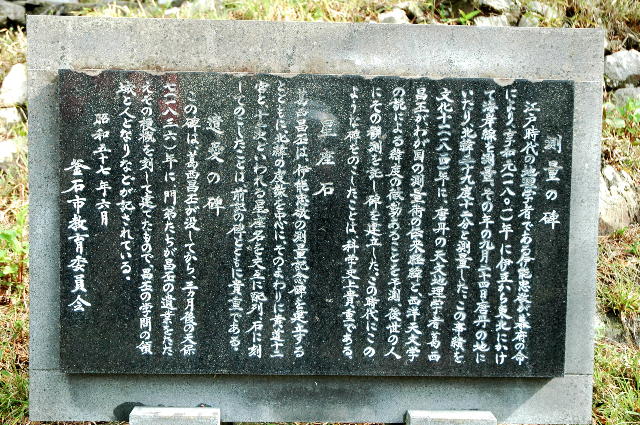 測量の碑
江戸時代の地理学者である伊能忠敬が幕府の令
により享和元(一八〇一)年に伊豆から東北にかけ
て海岸線を測量、その年の九月二十四日唐丹の地に
いたり北緯三十九度十二分と測量した。この事績を
文化十一(一八一四)年に、唐丹の天文地理学者葛西
昌丕がわが国の測量術の伝来経緯と、西洋天文学
の説による緯度の微動あることを予測、後世の人
にその観測を託し碑を建立した。この時代にこの
ような碑をのこしたことは、科学史上貴重である。
星座石
葛西昌丕は、伊能忠敬の測量記念碑を建立する
とともに北緯の度数を中心に、そのまわりに黄道十二
宮と十二次といわれる星座名を文字に配列し石に刻
してのこしたことは、前記の碑とともに貴重である。
遺愛の碑
この碑は、葛西昌丕が没してから、三ヶ月後の天保
七(一八三六)年に、門弟たちが昌丕の遺業をたた
えその事績を刻して建てたもので、昌丕の学問の領
域と人となりなどが記されている。
昭和五十七年六月
釜石市教育委員会